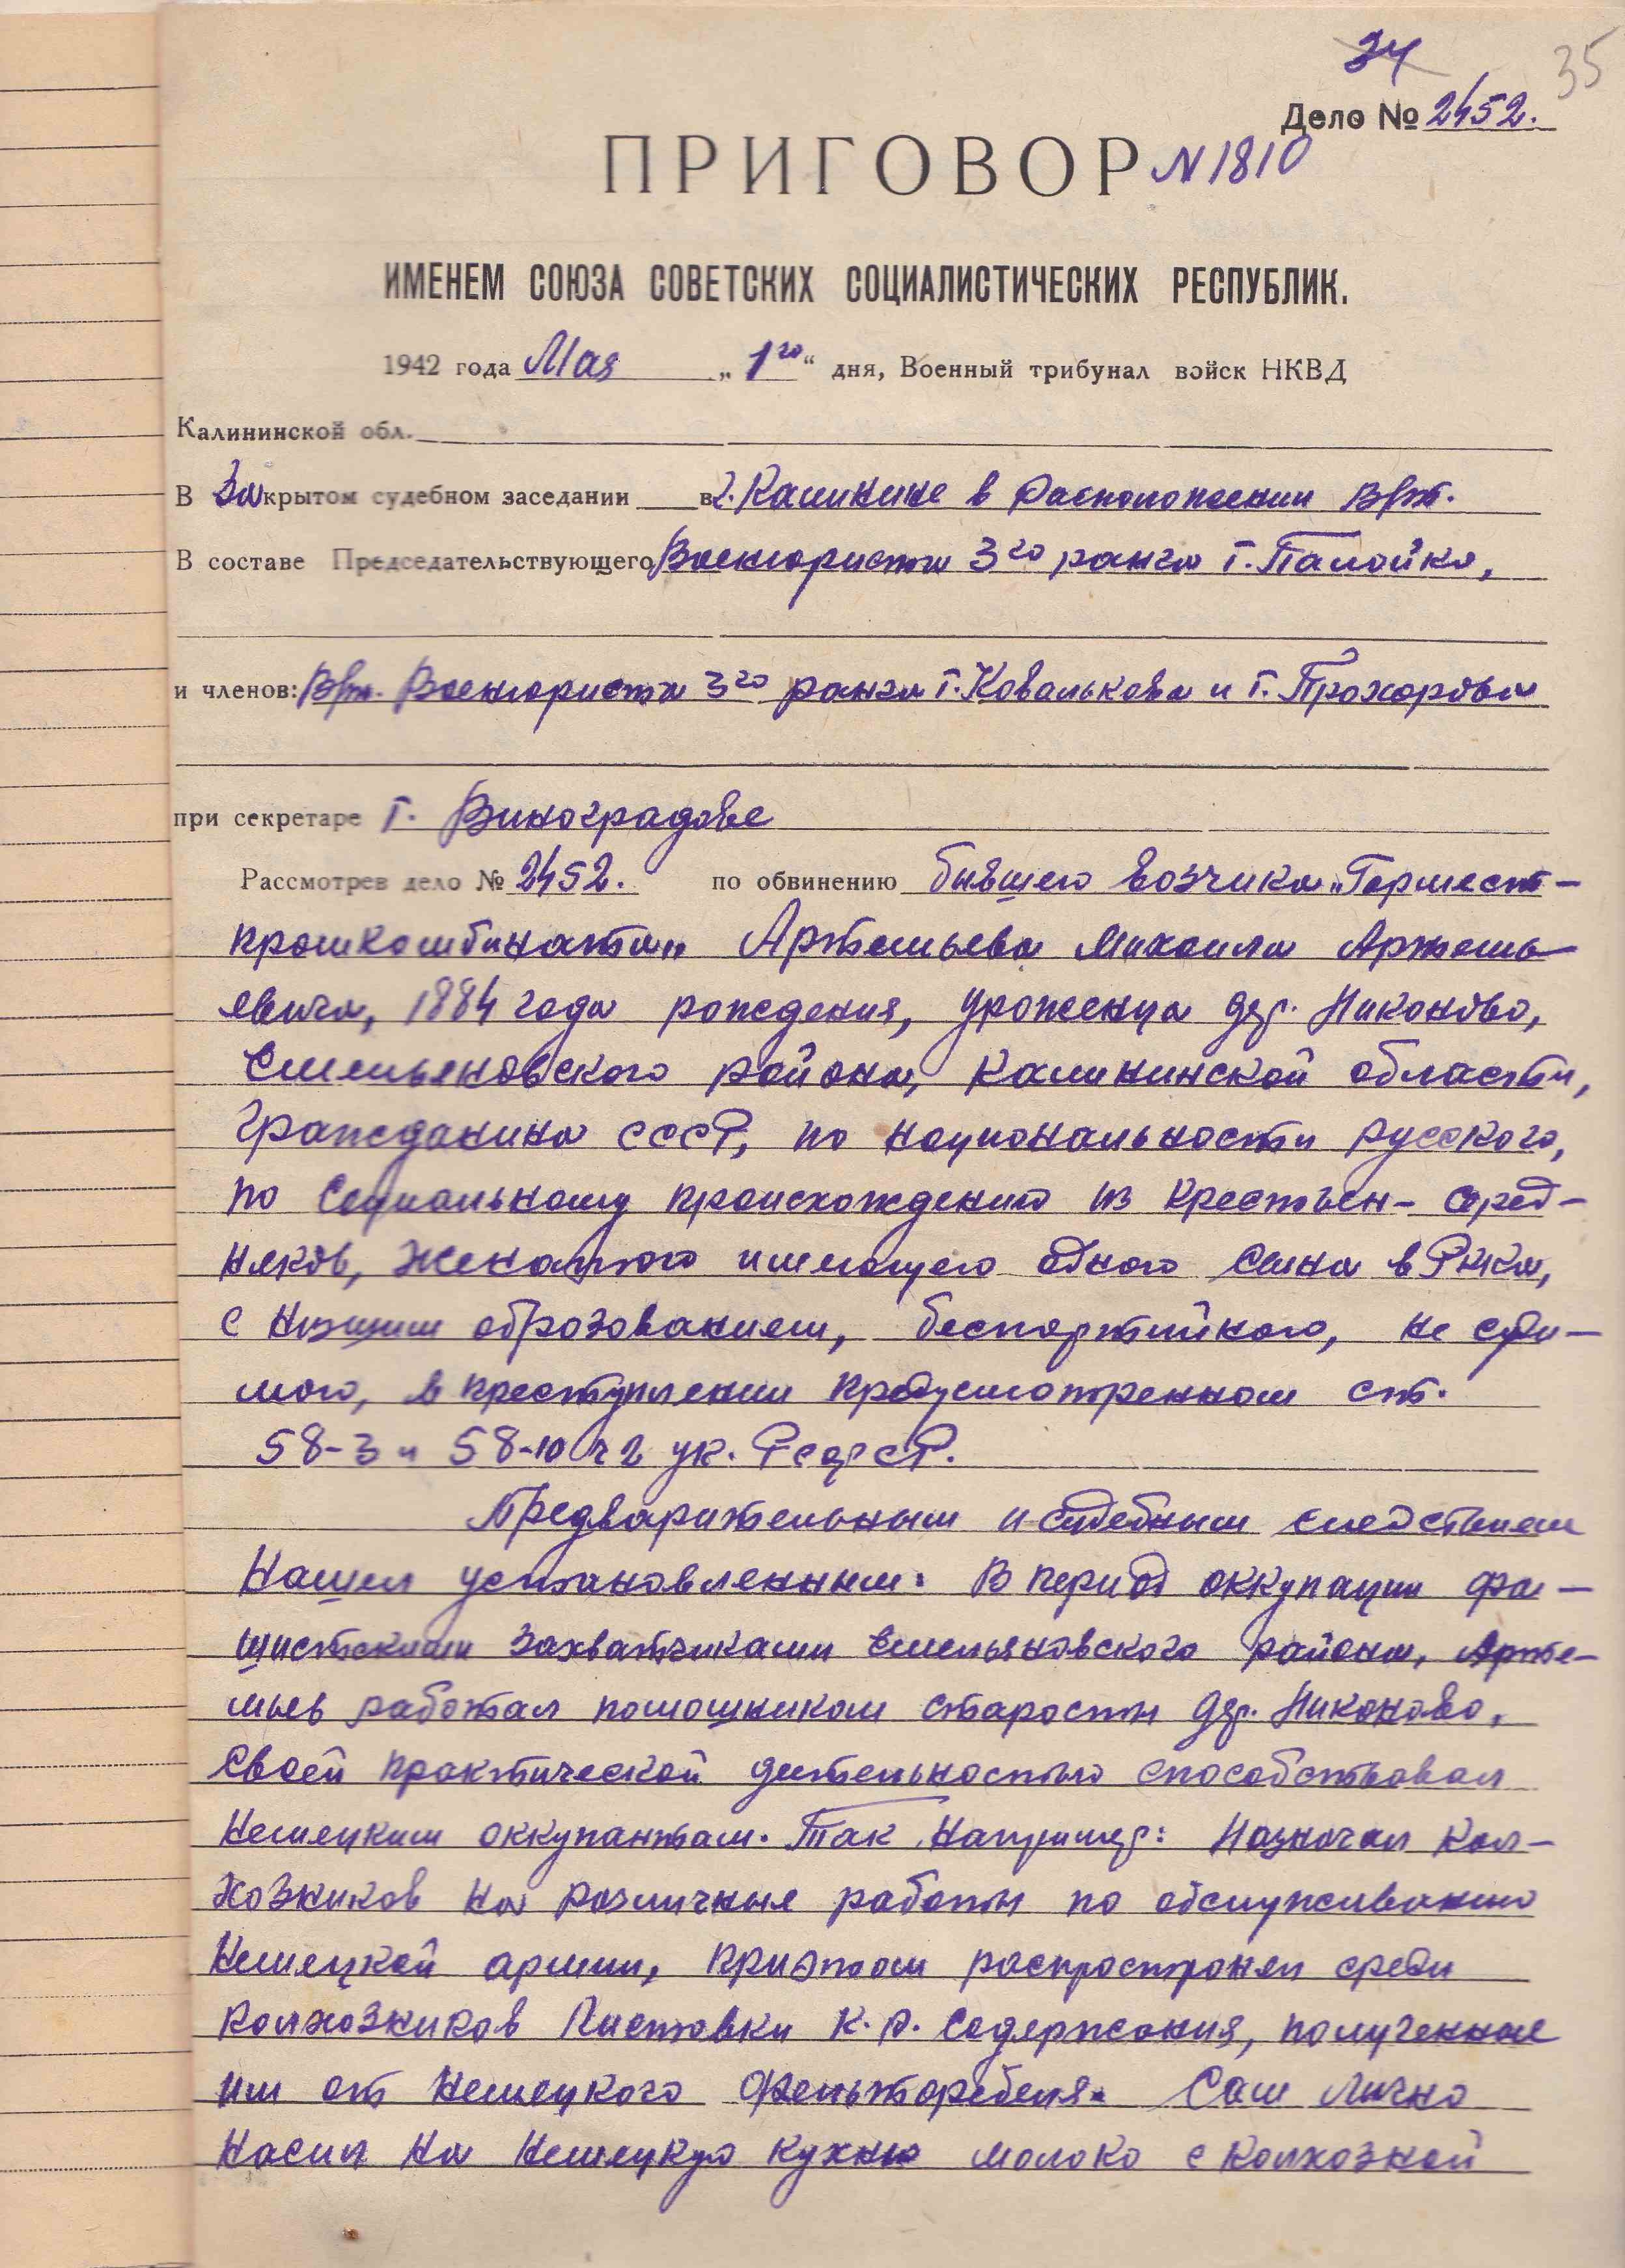 34
35
Дело № 2452.
ПРИГОВОР N 1810
ИМЕНЕМ СОЮЗА СОВЕТСКИХ СОЦИАЛИСТИЧЕСКИХ РЕСПУБЛИК.
1942 года Мая „ 1го “ дня, Военный трибунал войск НКВД
Калининской обл.
В Закрытом судебном заседании в г. Калинине в расположении
В составе Председательствующего Военюриста 3го ранга т. Палойко,
и членов: Военюриста 3го ранга т. Ковалькова и т. Прохорова
при секретаре т. Виноградове
Рассмотрев дело № 2452. по обвинению бывшего возчика „Гормест-
промкомбината„ Артемьева Михаила Артемь-
евича, 1884 года рождения, уроженца дер. Никоново,
Емельяновского района, Калининской области,
гражданина СССР, по национальности русского,
по социальному происхождению из крестьян- серед-
няков, женатого имеющего одного сына в РККА,
с низшим образованием, беспартийного, не суди-
мого, в преступлении предусмотренном ст.
58-3 и 58-10 ч 2 ук. РСФСР.
Предварительным и судебным следствием
Нашел установленным: В период оккупации фа-
шистскими захватчиками Емельяновского района, Арте-
мьев работал помошником старосты дер. Никоново,
Своей практической деятельностью способствовал
Немецким оккупантам. Так например: Назначал кол-
хозников на различные работы по обслуживанию
Немецкой армии, при этом распространял среди
Колхозников Листовки К.Р. Содержания, полученные
им от Немецкого Сам Лично
Насил на Немецкую кухню молоко с колхозной